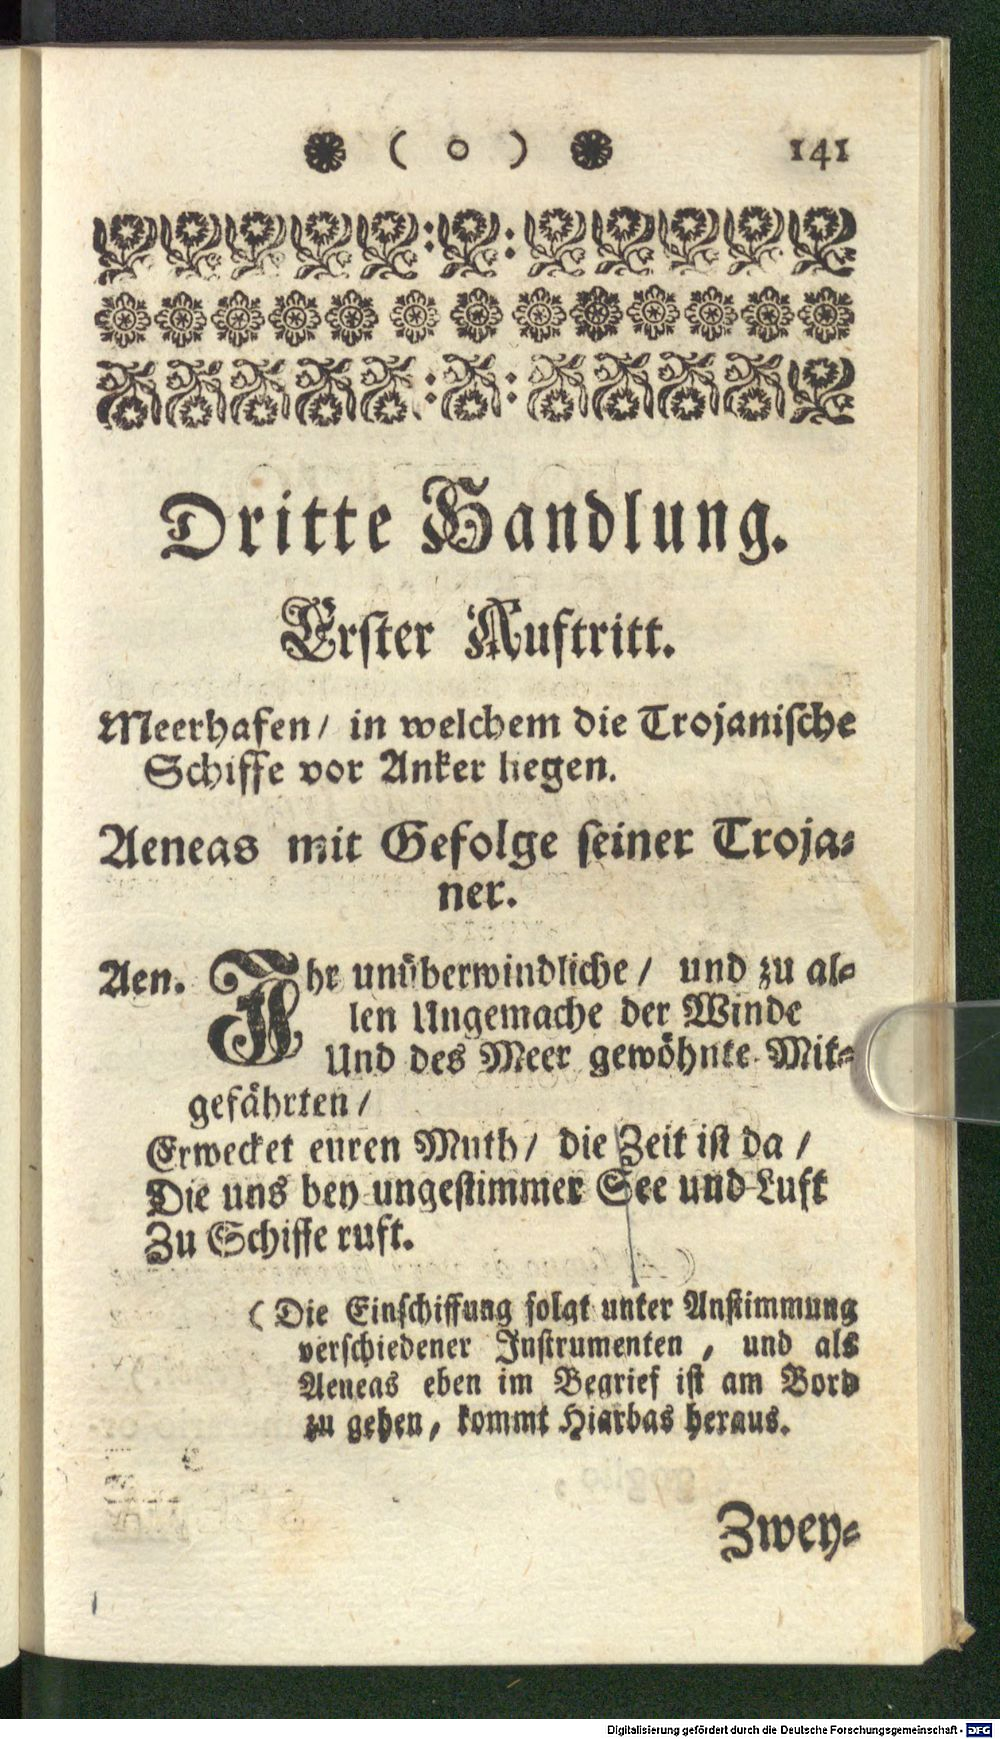 ( o ) 141
Dritte Handlung.
Erster Auftritt.
Meerhafen/ in welchem die Trojanische
Schiffe vor Anker liegen.
Aeneas mit Gefolge seiner Troja-
ner.
Aen. Ihr unüberwindliche/ und zu al-
len Ungemache der Winde
Und des Meer gewöhnte Mit-
gefährten/
Erwecket euren Muth/ die Zeit ist da/
Die uns bey ungestimmer See und Luft
Zu Schiffe ruft.
(Die Einschiffung folgt unter Anstimmung
verschiedener Instrumenten, und als
Aeneas eben im Begrief ist am Bord
zu gehen, kommt Hiarbas heraus.
Zwey-
Digitalisierung gefördert durch die Deutsche Forschungsgemeinschaft - DFG